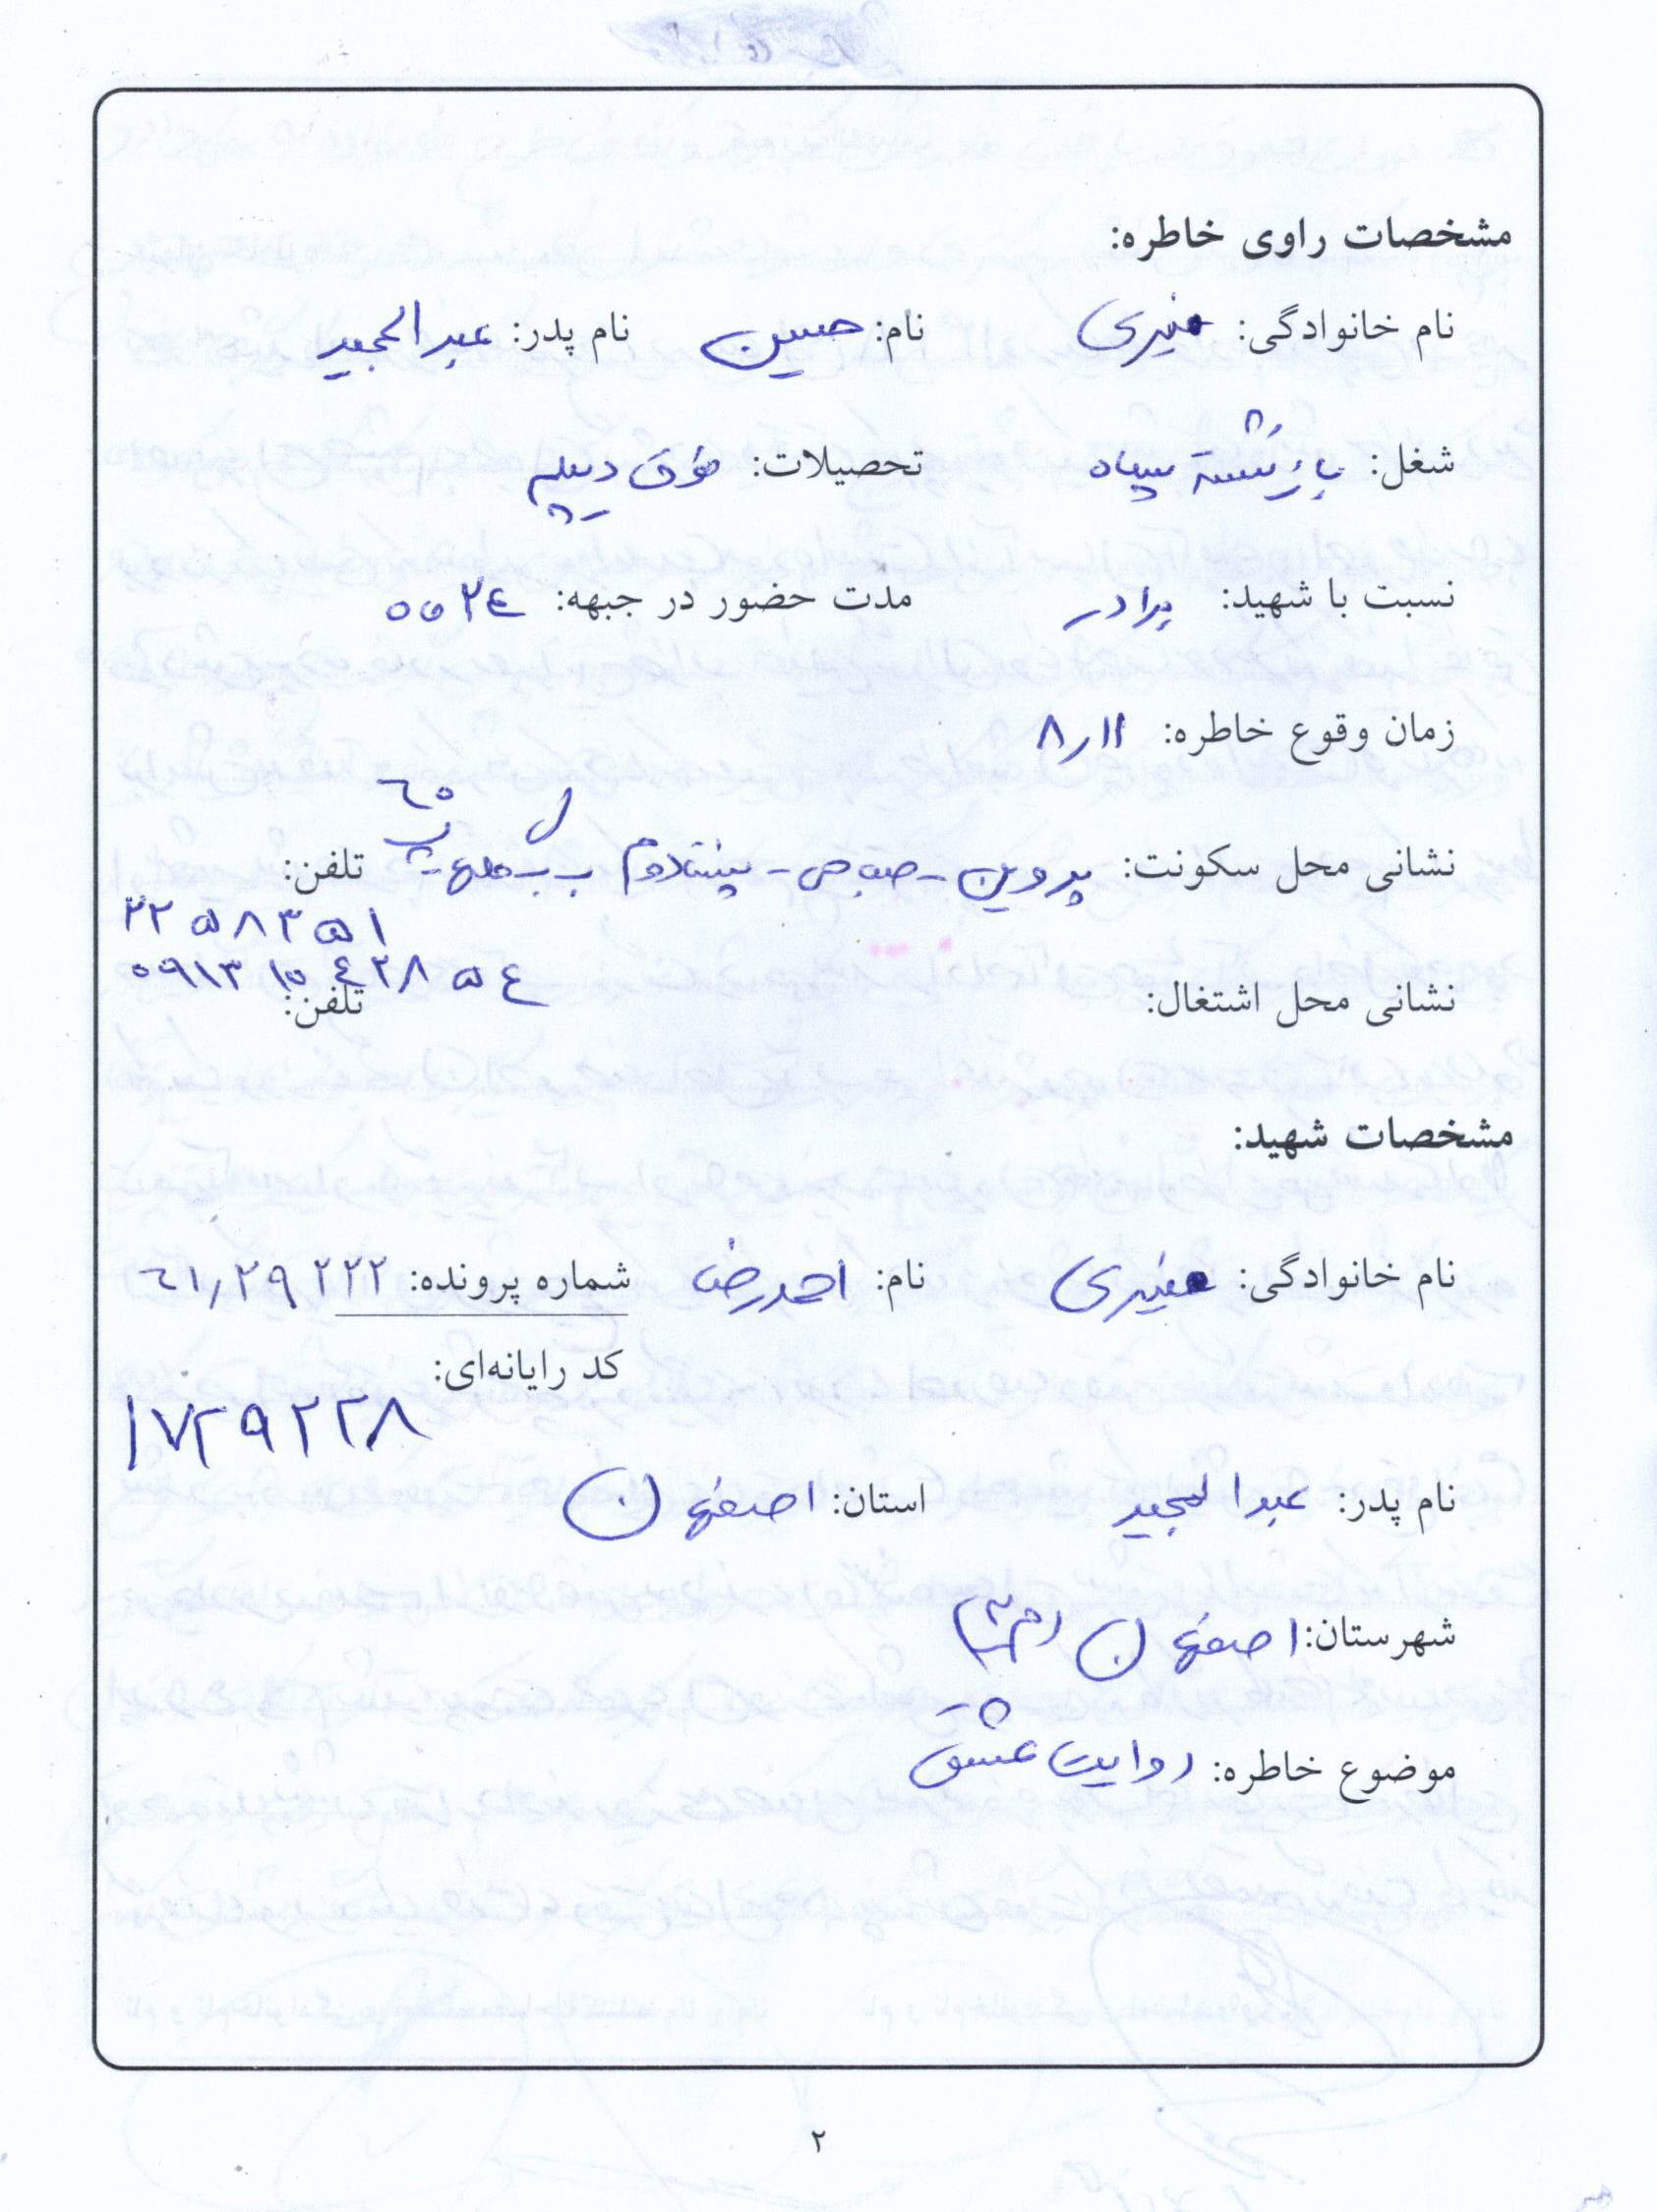 مشخصات راوی خاطره:
نام خانوادگی: منیری نام: حسین نام پدر: عبدالمجید
شغل: بازنشسته سپاه تحصیلات: فوق دیپلم
نسبت با شهید: برادر مدت حضور در جبهه: ۲۴
زمان وقوع خاطره: ۸٫۱۱
نشانی محل سکونت: پروین - - تلفن:
۲۲۵۸۳۵۱
۰۹۱۳ ۱۰ ۴۲۸ ۵۴
نشانی محل اشتغال: تلفن:
مشخصات شهید:
نام خانوادگی: منیری نام: احمدرضا شماره پرونده: ۶۱٫۲۹۲۲۲
کد رایانه‌ای:
۱۷۲۹۲۲۸
نام پدر: عبدالمجید استان: اصفهان
شهرستان: اصفهان
موضوع خاطره: روایت عشق
۲